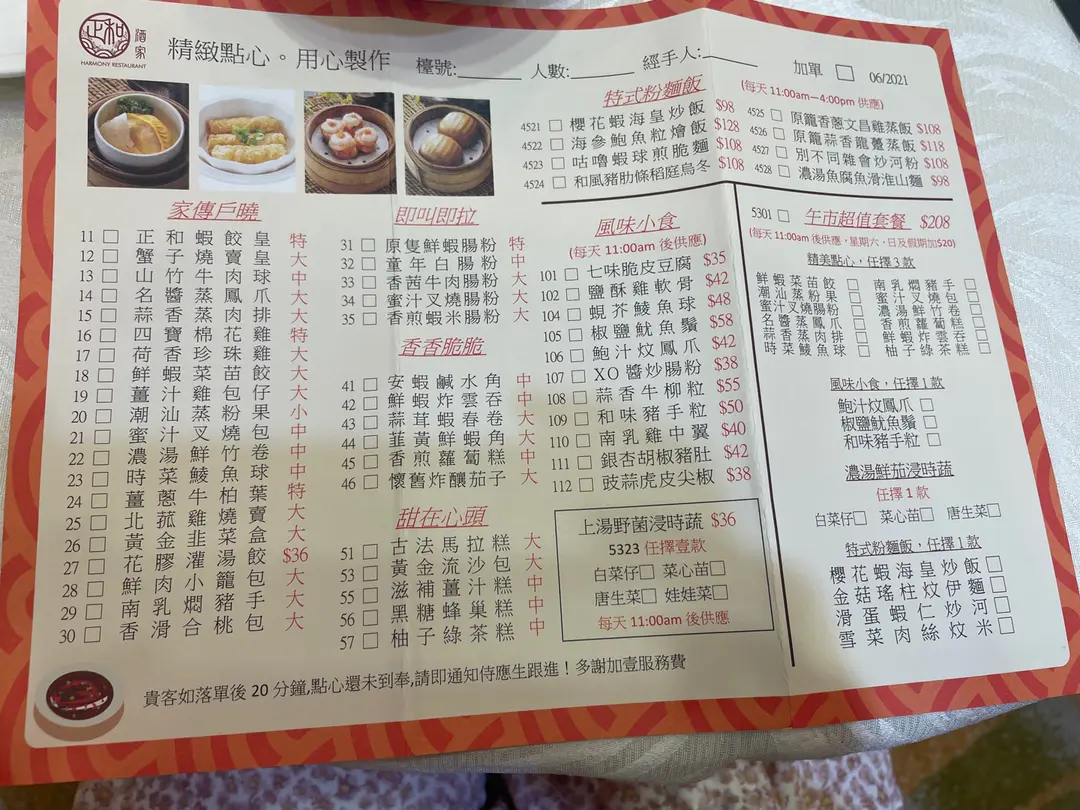 正和
酒家
HARMONY RESTAURANT
精緻點心。用心製作
檯號:______ 人數:______ 經手人:______ 加單 □ 06/2021
特式粉麵飯 (每天 11:00am—4:00pm 供應)
4521 □ 櫻花蝦海皇炒飯 $98
4522 □ 海參鮑魚粒燴飯 $128
4523 □ 咕嚕蝦球煎脆麵 $108
4524 □ 和風豬肋條稻庭烏冬 $108
4525 □ 原籠香蔥文昌雞蒸飯 $108
4526 □ 原籠蒜香龍躉蒸飯 $118
4527 □ 別不同雜會炒河粉 $108
4528 □ 濃湯魚腐魚滑淮山麵 $98
家傳戶曉
11 □ 正和蝦餃皇 特
12 □ 蟹子燒賣皇 大
13 □ 山竹牛肉球 中
14 □ 名醬蒸鳳爪 大
15 □ 蒜香蒸肉排 大
16 □ 四寶棉花雞 特
17 □ 荷香珍珠雞 大
18 □ 鮮蝦菜苗餃 大
19 □ 薑汁雞包仔 大
20 □ 潮汕蒸粉果 小
21 □ 蜜汁叉燒包 中
22 □ 濃湯鮮竹卷 中
23 □ 時菜鯪魚球 中
24 □ 薑蔥牛柏葉 特
25 □ 北菰雞燒賣 大
26 □ 黃金韭菜盒 大
27 □ 花膠灌湯餃 $36
28 □ 鮮肉小籠包 大
29 □ 南乳燜豬手 大
30 □ 香滑合桃包 大
即叫即拉
31 □ 原隻鮮蝦腸粉 特
32 □ 童年白腸粉 中
33 □ 香茜牛肉腸粉 大
34 □ 蜜汁叉燒腸粉 大
35 □ 香煎蝦米腸粉 大
香香脆脆
41 □ 安蝦鹹水角 中
42 □ 鮮蝦炸雲吞 中
43 □ 蒜茸蝦春卷 大
44 □ 韮黃鮮蝦角 大
45 □ 香煎蘿蔔糕 中
46 □ 懷舊炸釀茄子 大
甜在心頭
51 □ 古法馬拉糕 大
53 □ 黃金流沙包 大
55 □ 滋補薑汁糕 中
56 □ 黑糖蜂巢糕 中
57 □ 柚子綠茶糕 中
風味小食
(每天 11:00am 後供應)
101 □ 七味脆皮豆腐 $35
102 □ 鹽酥雞軟骨 $42
104 □ 蜆芥鯪魚球 $48
105 □ 椒鹽魷魚鬚 $58
106 □ 鮑汁炆鳳爪 $42
107 □ XO醬炒腸粉 $38
108 □ 蒜香牛柳粒 $55
109 □ 和味豬手粒 $50
110 □ 南乳雞中翼 $40
111 □ 銀杏胡椒豬肚 $42
112 □ 豉蒜虎皮尖椒 $38
上湯野菌浸時蔬 $36
5323 任擇壹款
白菜仔□ 菜心苗□
唐生菜□ 娃娃菜□
每天 11:00am 後供應
5301 □ 午市超值套餐 $208
(每天 11:00am 後供應，星期六，日及假期加$20)
精美點心，任擇 3 款
鮮蝦菜苗餃 □ 南乳燜豬手 □
潮汕蒸粉果 □ 蜜汁叉燒包 □
蜜汁叉燒腸粉 □ 濃湯鮮竹卷 □
名醬蒸鳳爪 □ 香煎蘿蔔糕 □
蒜香蒸肉排 □ 鮮蝦炸雲吞 □
時菜鯪魚球 □ 柚子綠茶糕 □
風味小食，任擇 1 款
鮑汁炆鳳爪 □
椒鹽魷魚鬚 □
和味豬手粒 □
濃湯鮮茄浸時蔬
任擇 1 款
白菜仔□ 菜心苗□ 唐生菜□
特式粉麵飯，任擇 1 款
櫻花蝦海皇炒飯 □
金菇瑤柱炆伊麵 □
滑蛋蝦仁炒河 □
雪菜肉絲炆米 □
貴客如落單後 20 分鐘,點心還未到奉,請即通知侍應生跟進！多謝加壹服務費